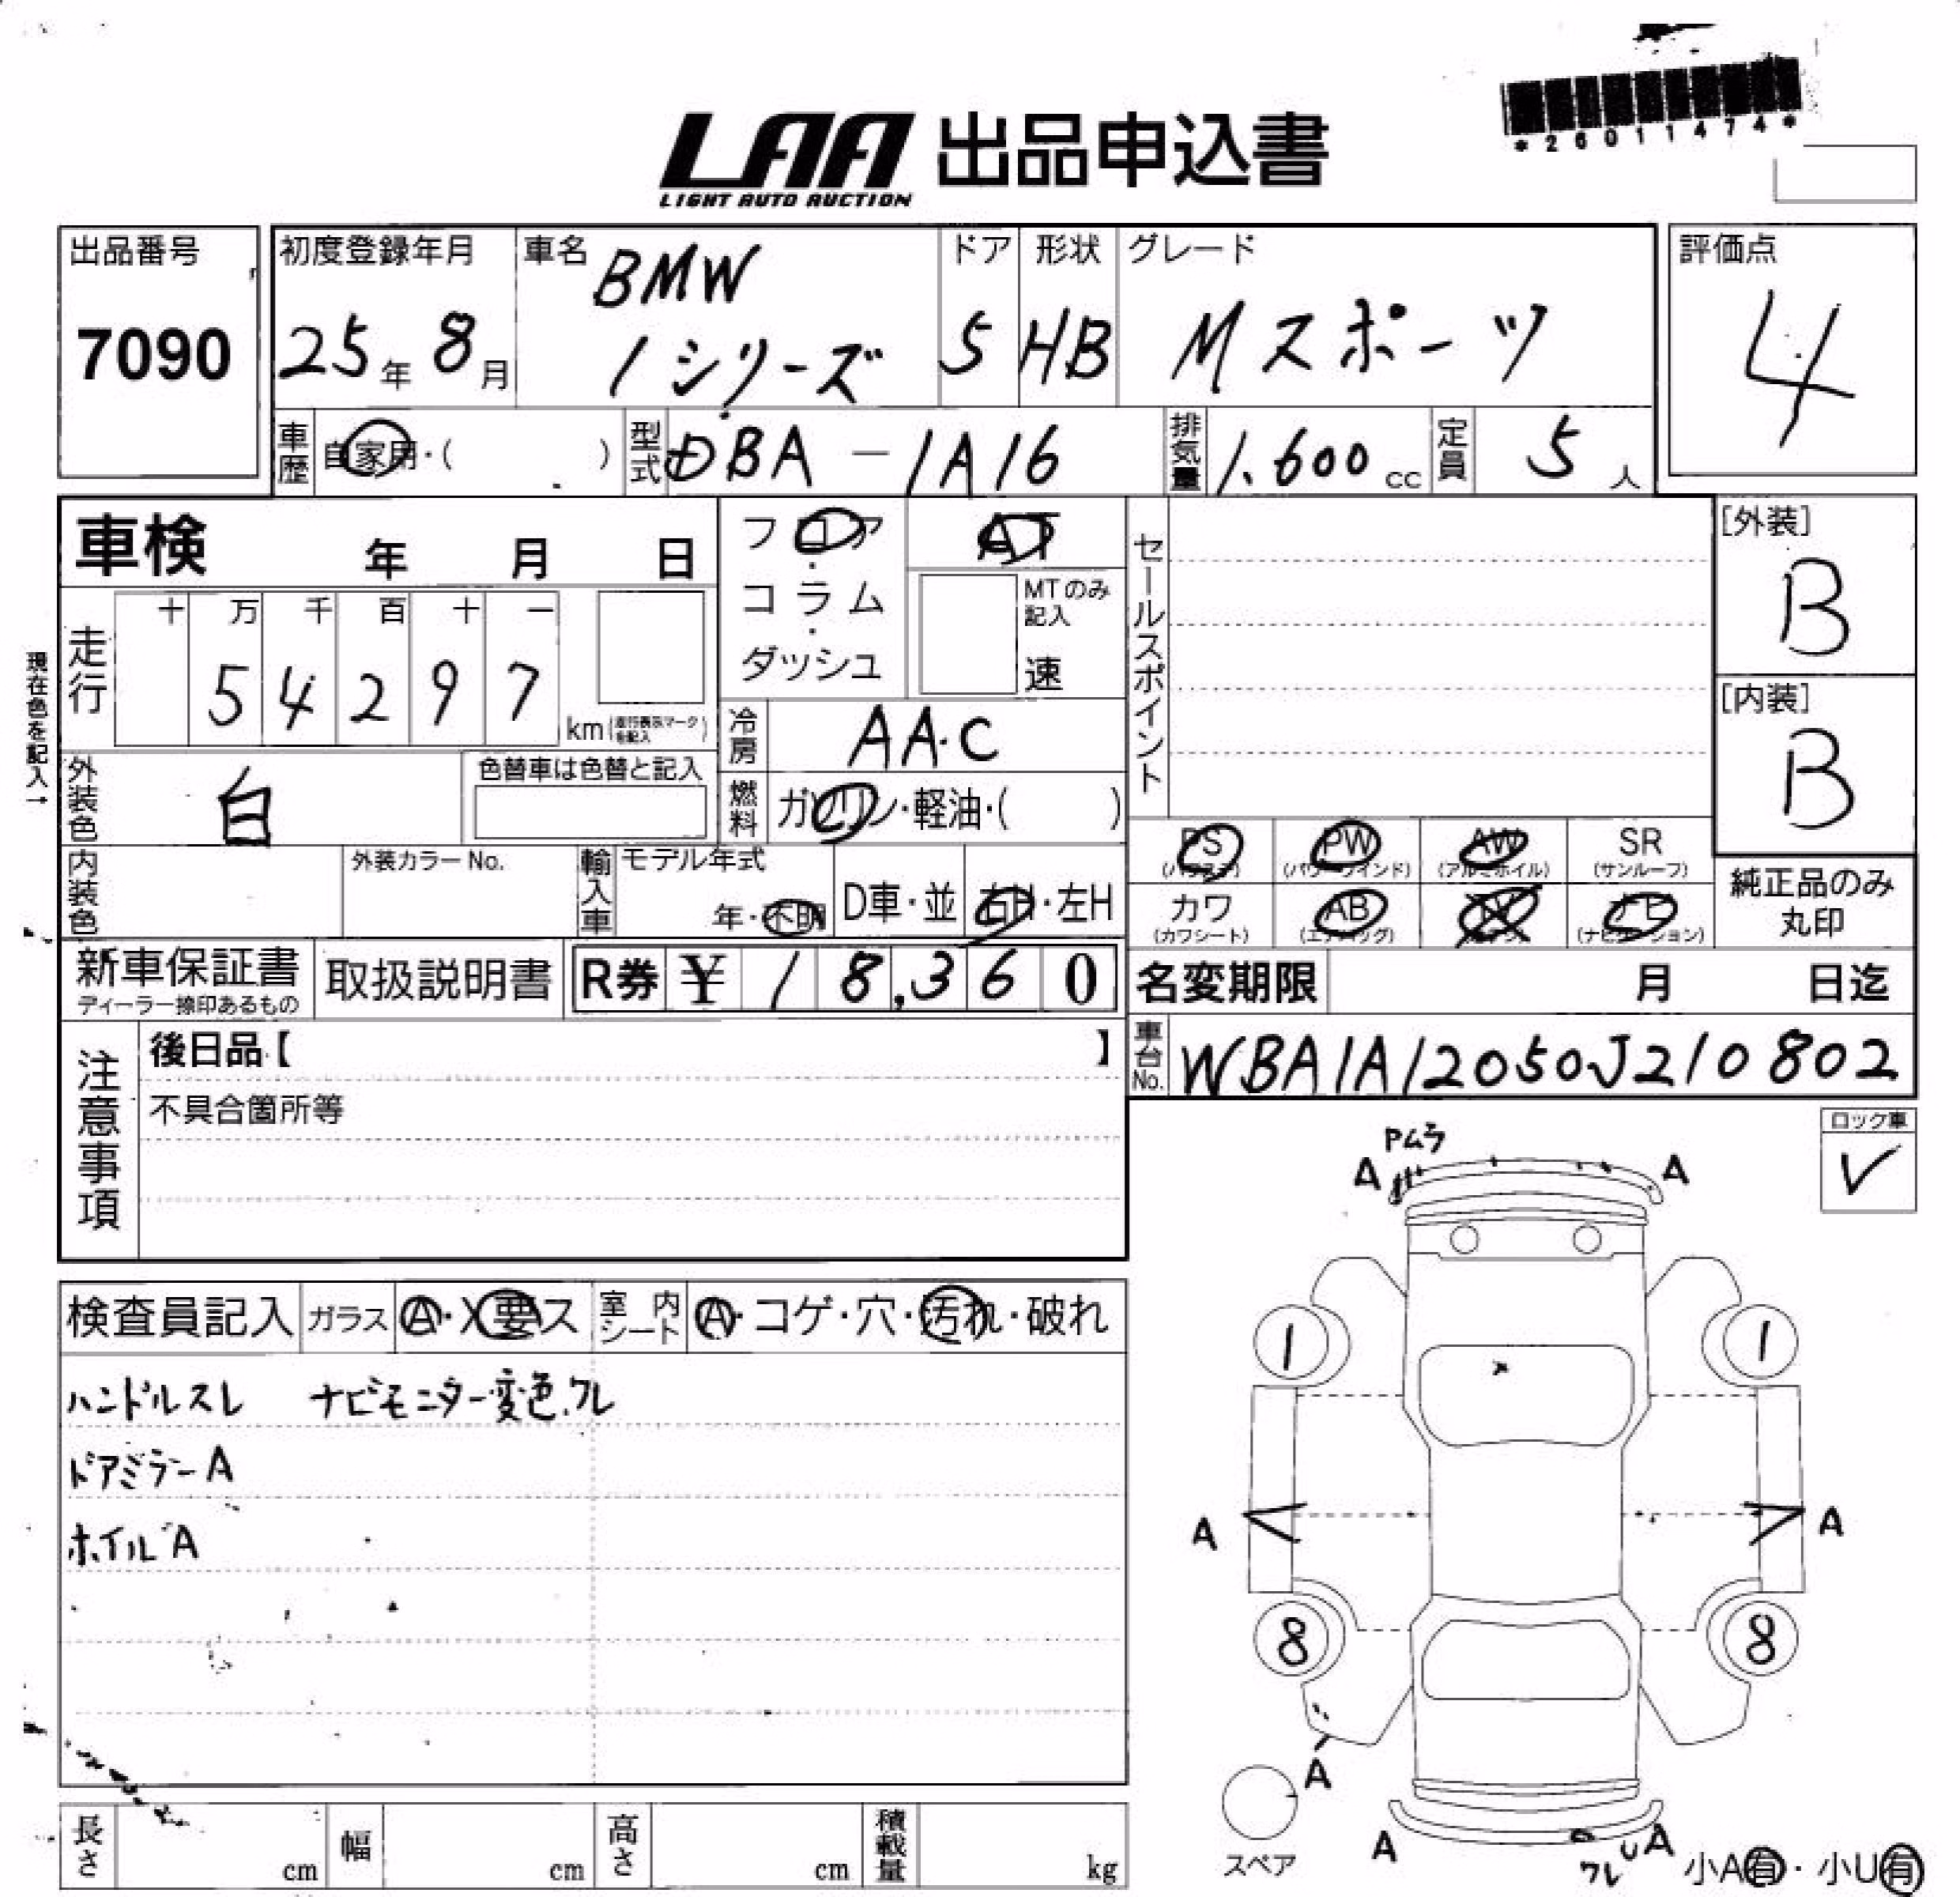 *26011474*
LAA 出品申込書
LIGHT AUTO AUCTION
出品番号 7090
初度登録年月 25年 8月
車名 BMW 1シリーズ
ドア 5
形状 HB
グレード Mスポーツ
評価点 4
車歴 自家用・( )
型式 DBA-1A16
排気量 1.600 cc
定員 5 人
車検 年 月 日
フロア・コラム・ダッシュ
AT
MTのみ記入 速
セールスポイント
[外装] B
[内装] B
現在色を記入→
走行 十 万 千 百 十 一
5 4 2 9 7 km (走行表示マークを記入)
冷房 AA.C
外装色 白
色替車は色替と記入
燃料 ガソリン・軽油・( )
内装色
外装カラーNo.
輸入車 モデル年式 年・不明
D車・並
右H・左H
PS (パワステ)
PW (パワーウインド)
AW (アルミホイル)
SR (サンルーフ)
カワ (カワシート)
AB (エアバッグ)
TV
ナビ (ナビゲーション)
純正品のみ丸印
新車保証書 ディーラー捺印あるもの
取扱説明書
R券 ¥ 1 8,3 6 0
名変期限 月 日迄
車台No. WBA1A12050J210802
注意事項
後日品【 】
不具合箇所等
ロック車 ✓
Pムラ
A A
検査員記入
ガラス A・X要ス
室内シート A・コゲ・穴・汚れ・破れ
ハンドルスレ ナビモニター変色.ワレ
ドアミラーA
ホイルA
1 1
A A
8 8
A
スペア
A
ワレ U A
小A有・小U有
長さ cm
幅 cm
高さ cm
積載量 kg